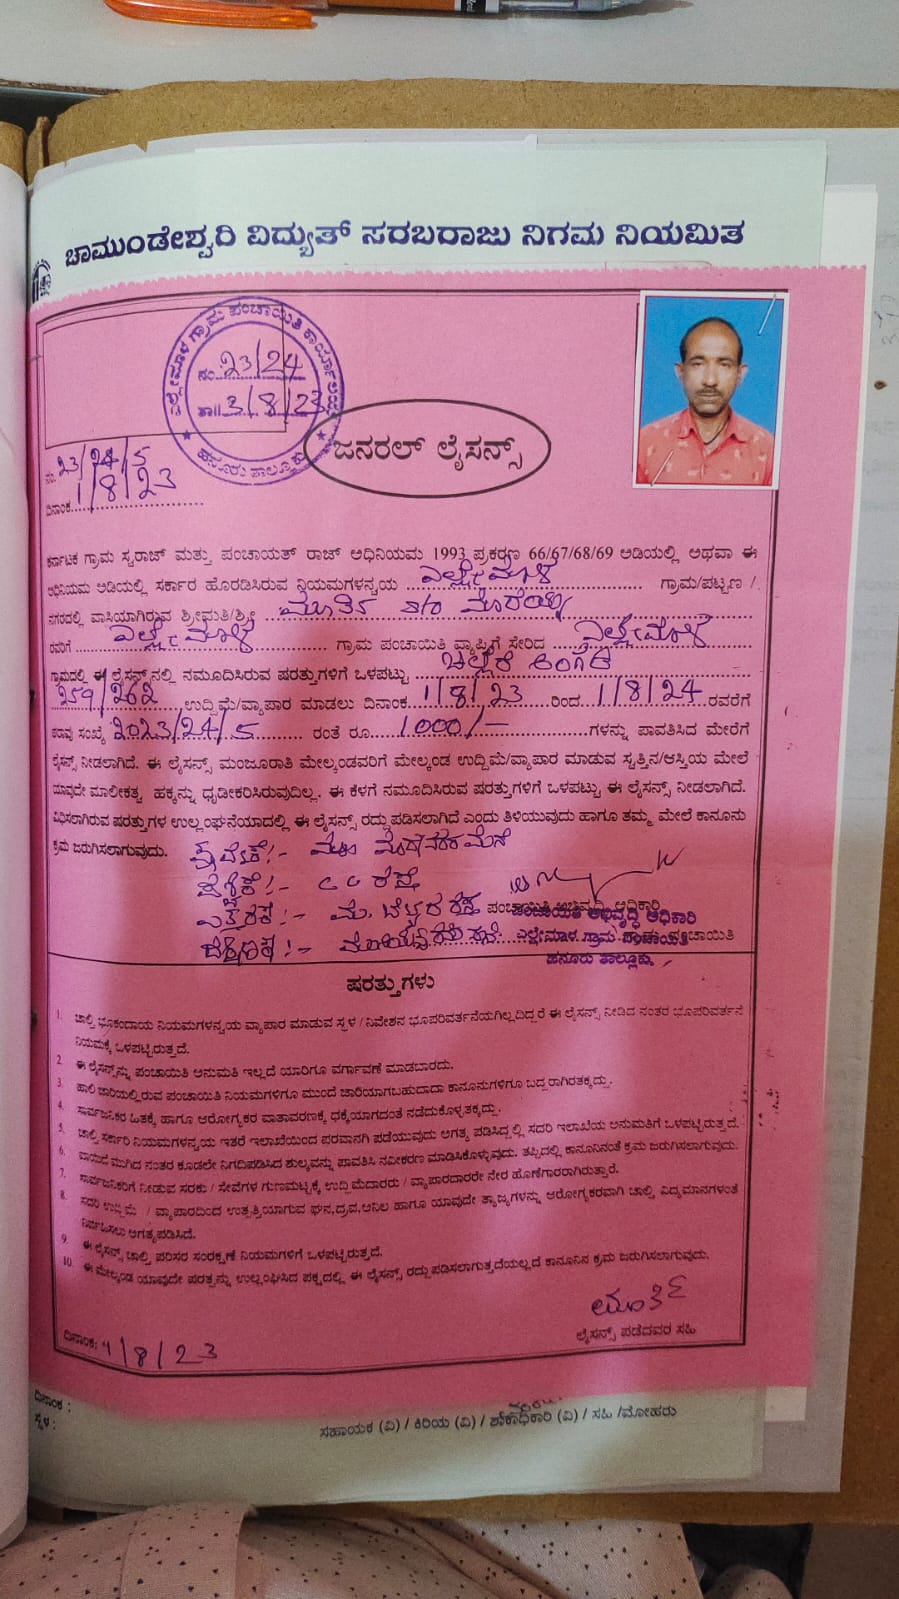 ಚಾಮುಂಡೇಶ್ವರಿ ವಿದ್ಯುತ್ ಸರಬರಾಜು ನಿಗಮ ನಿಯಮಿತ
ಎಲ್ಲೇಮಾಳ ಗ್ರಾಮ ಪಂಚಾಯಿತಿ ಕಾರ್ಯಾಲಯ
ನಂ. 23/24
ತಾ|| 3/8/23
ಹನೂರು ತಾಲ್ಲೂಕು
ಜನರಲ್ ಲೈಸನ್ಸ್
ನಂ. 23/24/5
ದಿನಾಂಕ 1/8/23
ಕರ್ನಾಟಕ ಗ್ರಾಮ ಸ್ವರಾಜ್ ಮತ್ತು ಪಂಚಾಯತ್ ರಾಜ್ ಅಧಿನಿಯಮ 1993 ಪ್ರಕರಣ 66/67/68/69 ಅಡಿಯಲ್ಲಿ ಅಥವಾ ಈ
ಅಧಿನಿಯಮ ಅಡಿಯಲ್ಲಿ ಸರ್ಕಾರ ಹೊರಡಿಸಿರುವ ನಿಯಮಗಳನ್ವಯ ಎಲ್ಲೇಮಾಳ ಗ್ರಾಮ/ಪಟ್ಟಣ /
ನಗರದಲ್ಲಿ ವಾಸಿಯಾಗಿರುವ ಶ್ರೀಮತಿ/ಶ್ರೀ ಮೂರ್ತಿ s/o
ರವರಿಗೆ ಎಲ್ಲೇಮಾಳ ಗ್ರಾಮ ಪಂಚಾಯಿತಿ ವ್ಯಾಪ್ತಿಗೆ ಸೇರಿದ ಎಲ್ಲೇಮಾಳ
ಗ್ರಾಮದಲ್ಲಿ ಈ ಲೈಸನ್ಸ್‌ನಲ್ಲಿ ನಮೂದಿಸಿರುವ ಷರತ್ತುಗಳಿಗೆ ಒಳಪಟ್ಟು ಚಿಲ್ಲರೆ ಅಂಗಡಿ
259/262 ಉದ್ದಿಮೆ/ವ್ಯಾಪಾರ ಮಾಡಲು ದಿನಾಂಕ 1/8/23 ರಿಂದ 1/8/24 ರವರೆಗೆ
ಕರಾವು ಸಂಖ್ಯೆ 2023/24/5 ರಂತೆ ರೂ. 1000/- ಗಳನ್ನು ಪಾವತಿಸಿದ ಮೇರೆಗೆ
ಲೈಸನ್ಸ್ ನೀಡಲಾಗಿದೆ. ಈ ಲೈಸನ್ಸ್ ಮಂಜೂರಾತಿ ಮೇಲ್ಕಂಡವರಿಗೆ ಮೇಲ್ಕಂಡ ಉದ್ದಿಮೆ/ವ್ಯಾಪಾರ ಮಾಡುವ ಸ್ವತ್ತಿನ/ಆಸ್ತಿಯ ಮೇಲೆ
ಯಾವುದೇ ಮಾಲೀಕತ್ವ ಹಕ್ಕನ್ನು ಧೃಡೀಕರಿಸಿರುವುದಿಲ್ಲ. ಈ ಕೆಳಗೆ ನಮೂದಿಸಿರುವ ಷರತ್ತುಗಳಿಗೆ ಒಳಪಟ್ಟು ಈ ಲೈಸನ್ಸ್ ನೀಡಲಾಗಿದೆ.
ವಿಧಿಸಲಾಗಿರುವ ಷರತ್ತುಗಳ ಉಲ್ಲಂಘನೆಯಾದಲ್ಲಿ ಈ ಲೈಸನ್ಸ್ ರದ್ದುಪಡಿಸಲಾಗಿದೆ ಎಂದು ತಿಳಿಯುವುದು ಹಾಗೂ ತಮ್ಮ ಮೇಲೆ ಕಾನೂನು
ಕ್ರಮ ಜರುಗಿಸಲಾಗುವುದು.
ಪಂಚಾಯಿತಿ ಅಭಿವೃದ್ಧಿ ಅಧಿಕಾರಿ
ಪಂಚಾಯಿತಿ ಅಭಿವೃದ್ಧಿ ಅಧಿಕಾರಿ
ಎಲ್ಲೇಮಾಳ ಗ್ರಾಮ ಪಂಚಾಯಿತಿ
ಹನೂರು ತಾಲ್ಲೂಕು
ಷರತ್ತುಗಳು
1. ಚಾಲ್ತಿ ಭೂಕಂದಾಯ ನಿಯಮಗಳನ್ವಯ ವ್ಯಾಪಾರ ಮಾಡುವ ಸ್ಥಳ / ನಿವೇಶನ ಭೂಪರಿವರ್ತನೆಯಗಿಲ್ಲದಿದ್ದರೆ ಈ ಲೈಸನ್ಸ್ ನೀಡಿದ ನಂತರ ಭೂಪರಿವರ್ತನೆ
ನಿಯಮಕ್ಕೆ ಒಳಪಟ್ಟಿರುತ್ತದೆ.
2. ಈ ಲೈಸನ್ಸ್‌ನ್ನು ಪಂಚಾಯಿತಿ ಅನುಮತಿ ಇಲ್ಲದೆ ಯಾರಿಗೂ ವರ್ಗಾವಣೆ ಮಾಡಬಾರದು.
3. ಹಾಲಿ ಜಾರಿಯಲ್ಲಿರುವ ಪಂಚಾಯಿತಿ ನಿಯಮಗಳಿಗೂ ಮುಂದೆ ಜಾರಿಯಾಗಬಹುದಾದಾ ಕಾನೂನುಗಳಿಗೂ ಬದ್ದರಾಗಿರತಕ್ಕದ್ದು.
4. ಸಾರ್ವಜನಿಕರ ಹಿತಕ್ಕೆ ಹಾಗೂ ಆರೋಗ್ಯಕರ ವಾತಾವರಣಕ್ಕೆ ಧಕ್ಕೆಯಾಗದಂತೆ ನಡೆದುಕೊಳ್ಳತಕ್ಕದ್ದು.
5. ಚಾಲ್ತಿ ಸರ್ಕಾರಿ ನಿಯಮಗಳನ್ವಯ ಇತರೆ ಇಲಾಖೆಯಿಂದ ಪರವಾನಗಿ ಪಡೆಯುವುದು ಅಗತ್ಯ ಪಡಿಸಿದ್ದಲ್ಲಿ ಸದರಿ ಇಲಾಖೆಯ ಅನುಮತಿಗೆ ಒಳಪಟ್ಟಿರುತ್ತದೆ.
6. ವಾಯಿದೆ ಮುಗಿದ ನಂತರ ಕೂಡಲೇ ನಿಗದಿಪಡಿಸಿದ ಶುಲ್ಕವನ್ನು ಪಾವತಿಸಿ ನವೀಕರಣ ಮಾಡಿಸಿಕೊಳ್ಳುವುದು. ತಪ್ಪಿದಲ್ಲಿ ಕಾನೂನಿನಂತೆ ಕ್ರಮ ಜರುಗಿಸಲಾಗುವುದು.
7. ಸಾರ್ವಜನಿಕರಿಗೆ ನೀಡುವ ಸರಕು / ಸೇವೆಗಳ ಗುಣಮಟ್ಟಕ್ಕೆ ಉದ್ದಿಮೆದಾರರು / ವ್ಯಾಪಾರದಾರರೇ ನೇರ ಹೊಣೆಗಾರರಾಗಿರುತ್ತಾರೆ.
8. ಸದರಿ ಉದ್ದಿಮೆ / ವ್ಯಾಪಾರದಿಂದ ಉತ್ಪತ್ತಿಯಾಗುವ ಘನ,ದ್ರವ,ಅನಿಲ ಹಾಗೂ ಯಾವುದೇ ತ್ಯಾಜ್ಯಗಳನ್ನು ಆರೋಗ್ಯಕರವಾಗಿ ಚಾಲ್ತಿ ವಿದ್ಯಮಾನಗಳಂತೆ
ನಿರ್ವಹಿಸಲು ಅಗತ್ಯಪಡಿಸಿದೆ.
9. ಈ ಲೈಸನ್ಸ್ ಚಾಲ್ತಿ ಪರಿಸರ ಸಂರಕ್ಷಣೆ ನಿಯಮಗಳಿಗೆ ಒಳಪಟ್ಟಿರುತ್ತದೆ.
10. ಈ ಮೇಲ್ಕಂಡ ಯಾವುದೇ ಷರತ್ತನ್ನು ಉಲ್ಲಂಘಿಸಿದ ಪಕ್ಷದಲ್ಲಿ ಈ ಲೈಸನ್ಸ್ ರದ್ದುಪಡಿಸಲಾಗುತ್ತದೆಯಲ್ಲದೆ ಕಾನೂನಿನ ಕ್ರಮ ಜರುಗಿಸಲಾಗುವುದು.
ಮೂರ್ತಿ
ಲೈಸನ್ಸ್ ಪಡೆದವರ ಸಹಿ
ದಿನಾಂಕ: 1/8/23
ದಿನಾಂಕ :
ಸ್ಥಳ :
ಸಹಾಯಕ (ವಿ) / ಕಿರಿಯ (ವಿ) / ಶಾಖಾಧಿಕಾರಿ (ವಿ) / ಸಹಿ /ಮೋಹರು